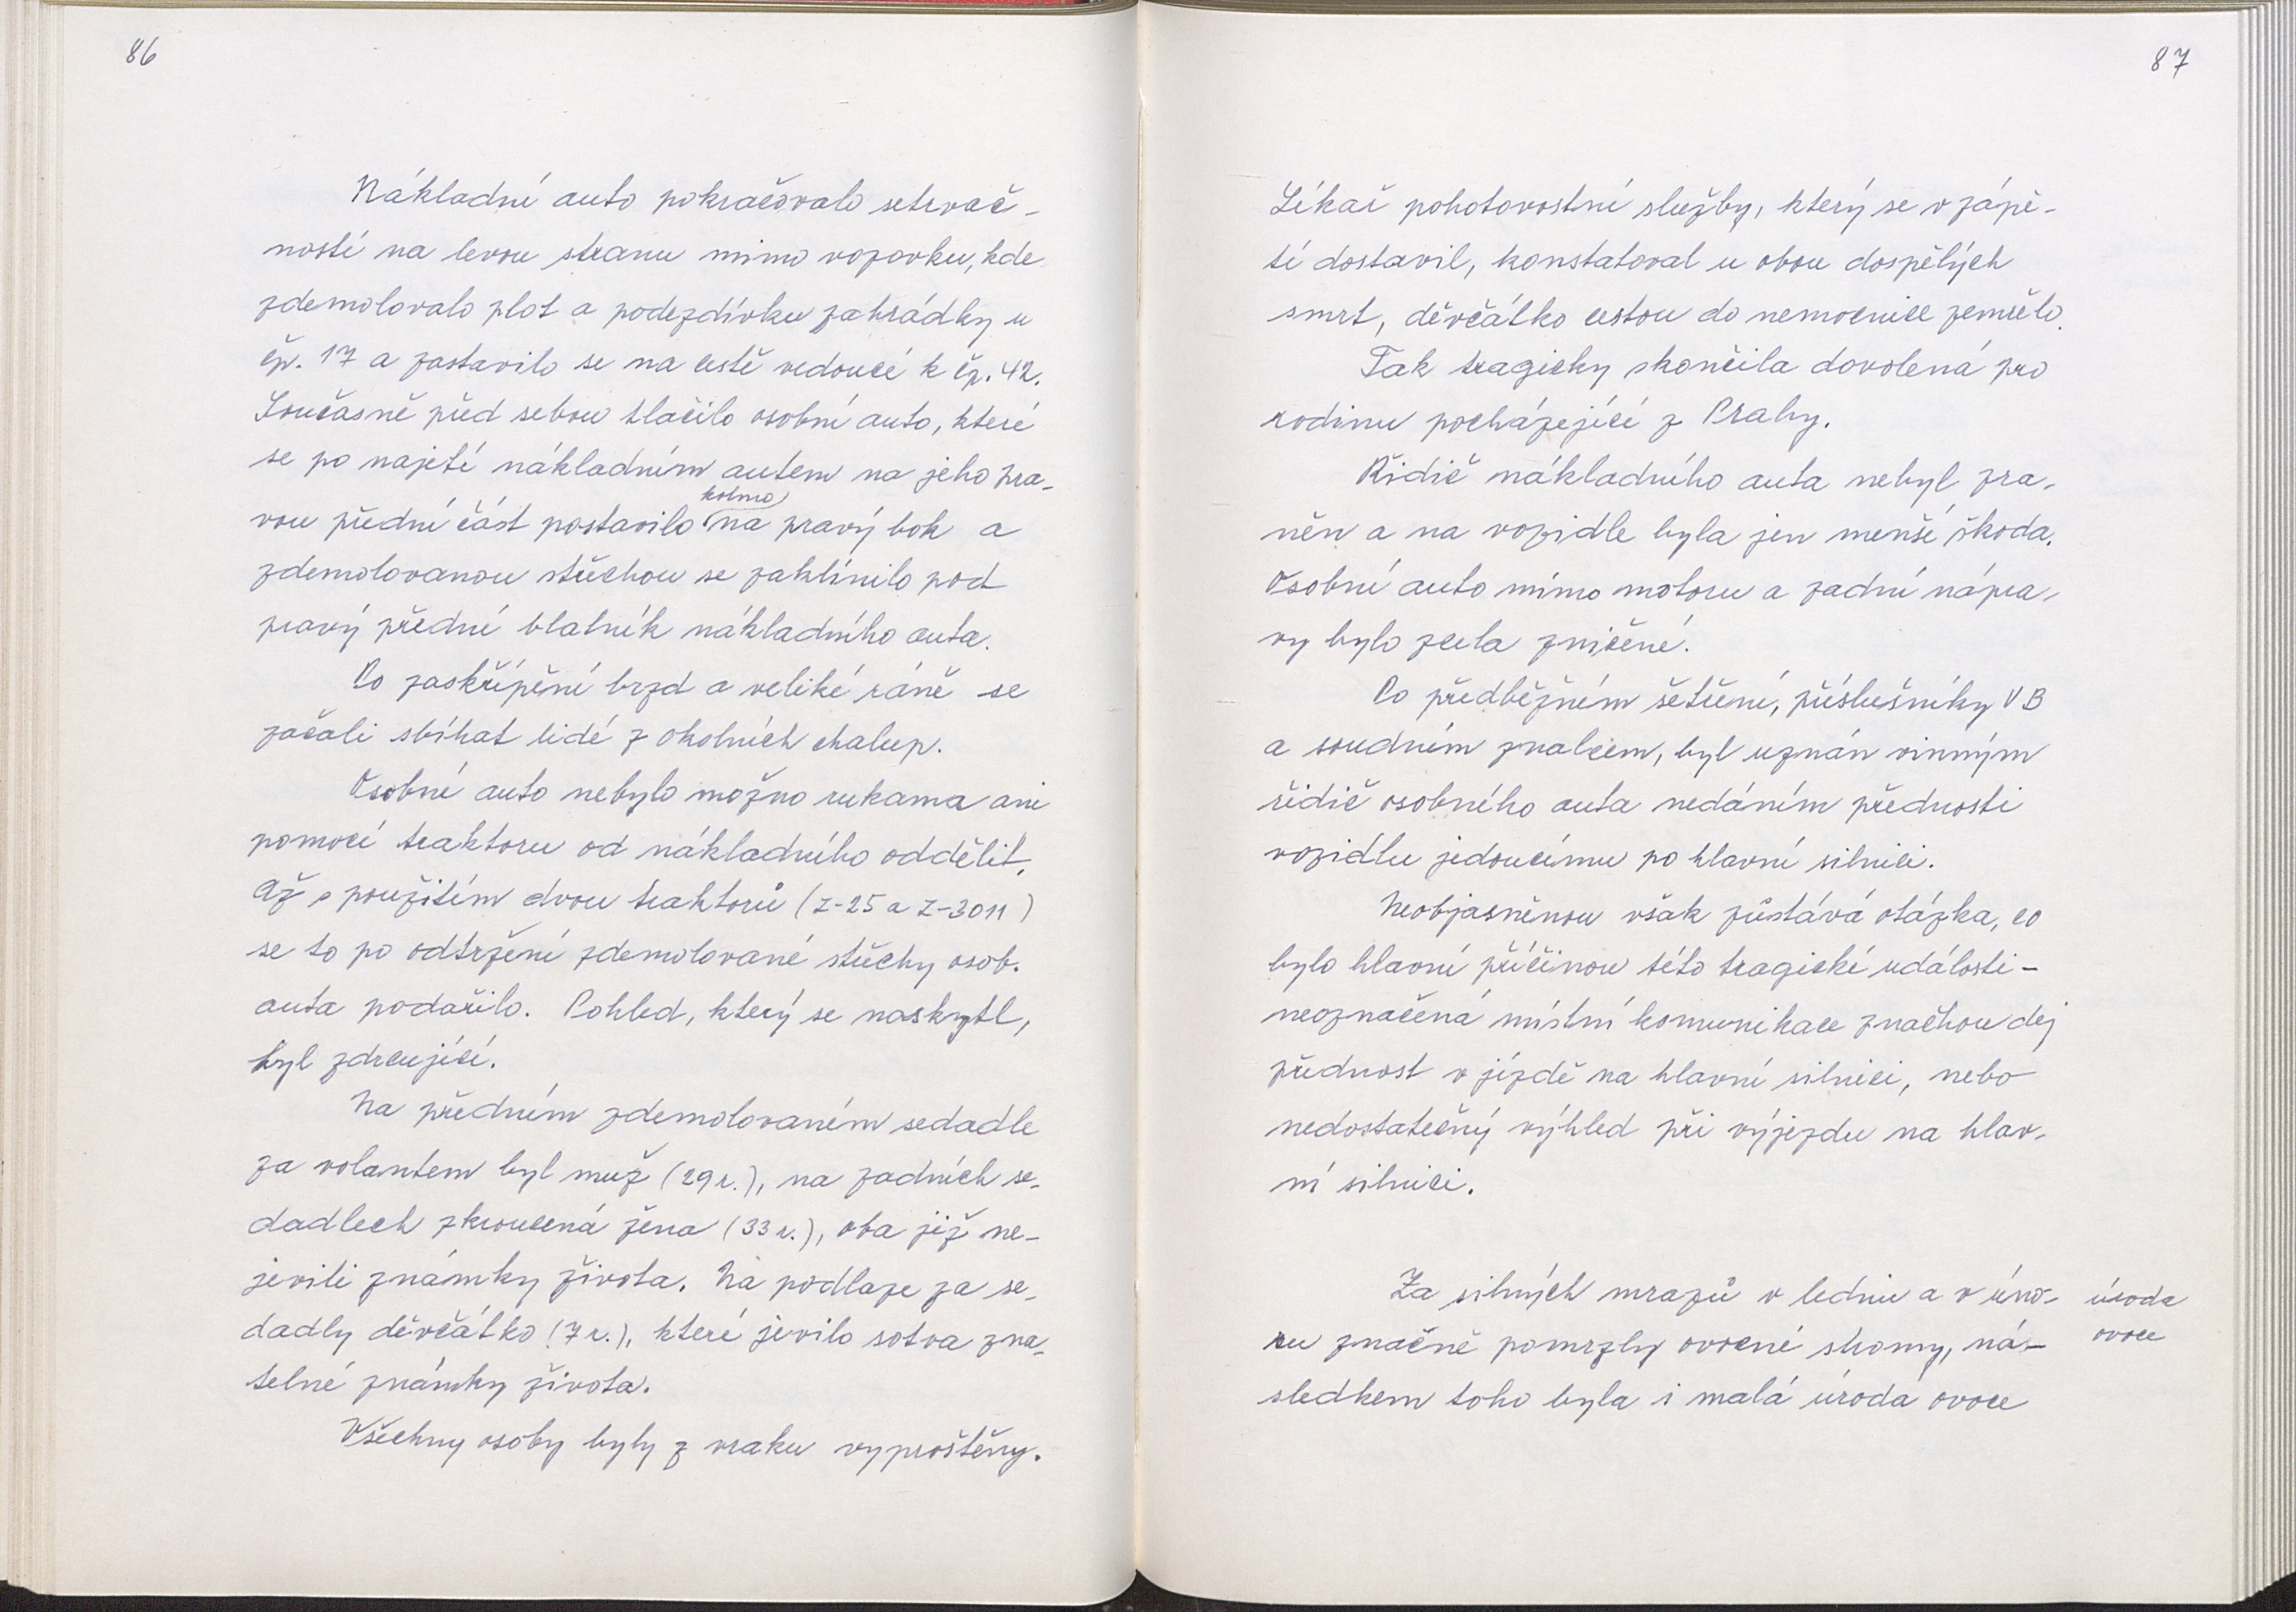 86
Nákladní auto pokračovalo setrvač-
ností na levou stranu mimo vozovku, kde
zdemolovalo plot a podezdívku zahrádky u
čp. 17 a zastavilo se na cestě vedoucí k čp. 42.
Současně před sebou tlačilo osobní auto, které
se po najetí nákladním autem na jeho pra-
kolmo
vou přední část postavilo na pravý bok a
zdemolovanou střechou se zaklínilo pod
pravý přední blatník nákladního auta.
Po zaskřípění brzd a veliké ráně se
začali sbíhat lidé z okolních chalup.
Osobní auto nebylo možno rukama ani
pomocí traktoru od nákladního oddělit,
Až s použitím dvou traktorů (Z-25 a Z-3011)
se to po odtržení zdemolované střechy osob.
auta podařilo. Pohled, který se naskytl,
byl zdrcující.
Na předním zdemolovaném sedadle
za volantem byl muž (29 r.), na zadních se-
dadlech zkroucená žena (33 r.), oba již ne-
jevili známky života. Na podlaze za se-
dadly děvčátko (7 r.), které jevilo sotva zna-
telné známky života.
Všechny osoby byly z vraku vyproštěny.
87
Lékař pohotovostní služby, který se v zápě-
tí dostavil, konstatoval u obou dospělých
smrt, děvčátko cestou do nemocnice zemřelo.
Tak tragicky skončila dovolená pro
rodinu pocházející z Prahy.
Řidič nákladního auta nebyl zra-
něn a na vozidle byla jen menší škoda.
Osobní auto mimo motoru a zadní nápra-
vy bylo zcela zničené.
Po předběžném šetření, příslušníky VB
a soudním znalcem, byl uznán vinným
řidič osobního auta nedáním přednosti
vozidlu jedoucímu po hlavní silnici.
Neobjasněnou však zůstává otázka, co
bylo hlavní příčinou této tragické události -
neoznačená místní komunikace značkou dej
přednost v jízdě na hlavní silnici, nebo
nedostatečný výhled při výjezdu na hlav-
ní silnici.
Za silných mrazů v lednu a v úno-
ru značně pomrzly ovocné stromy, ná-
sledkem toho byla i malá úroda ovoce
úroda
ovoce